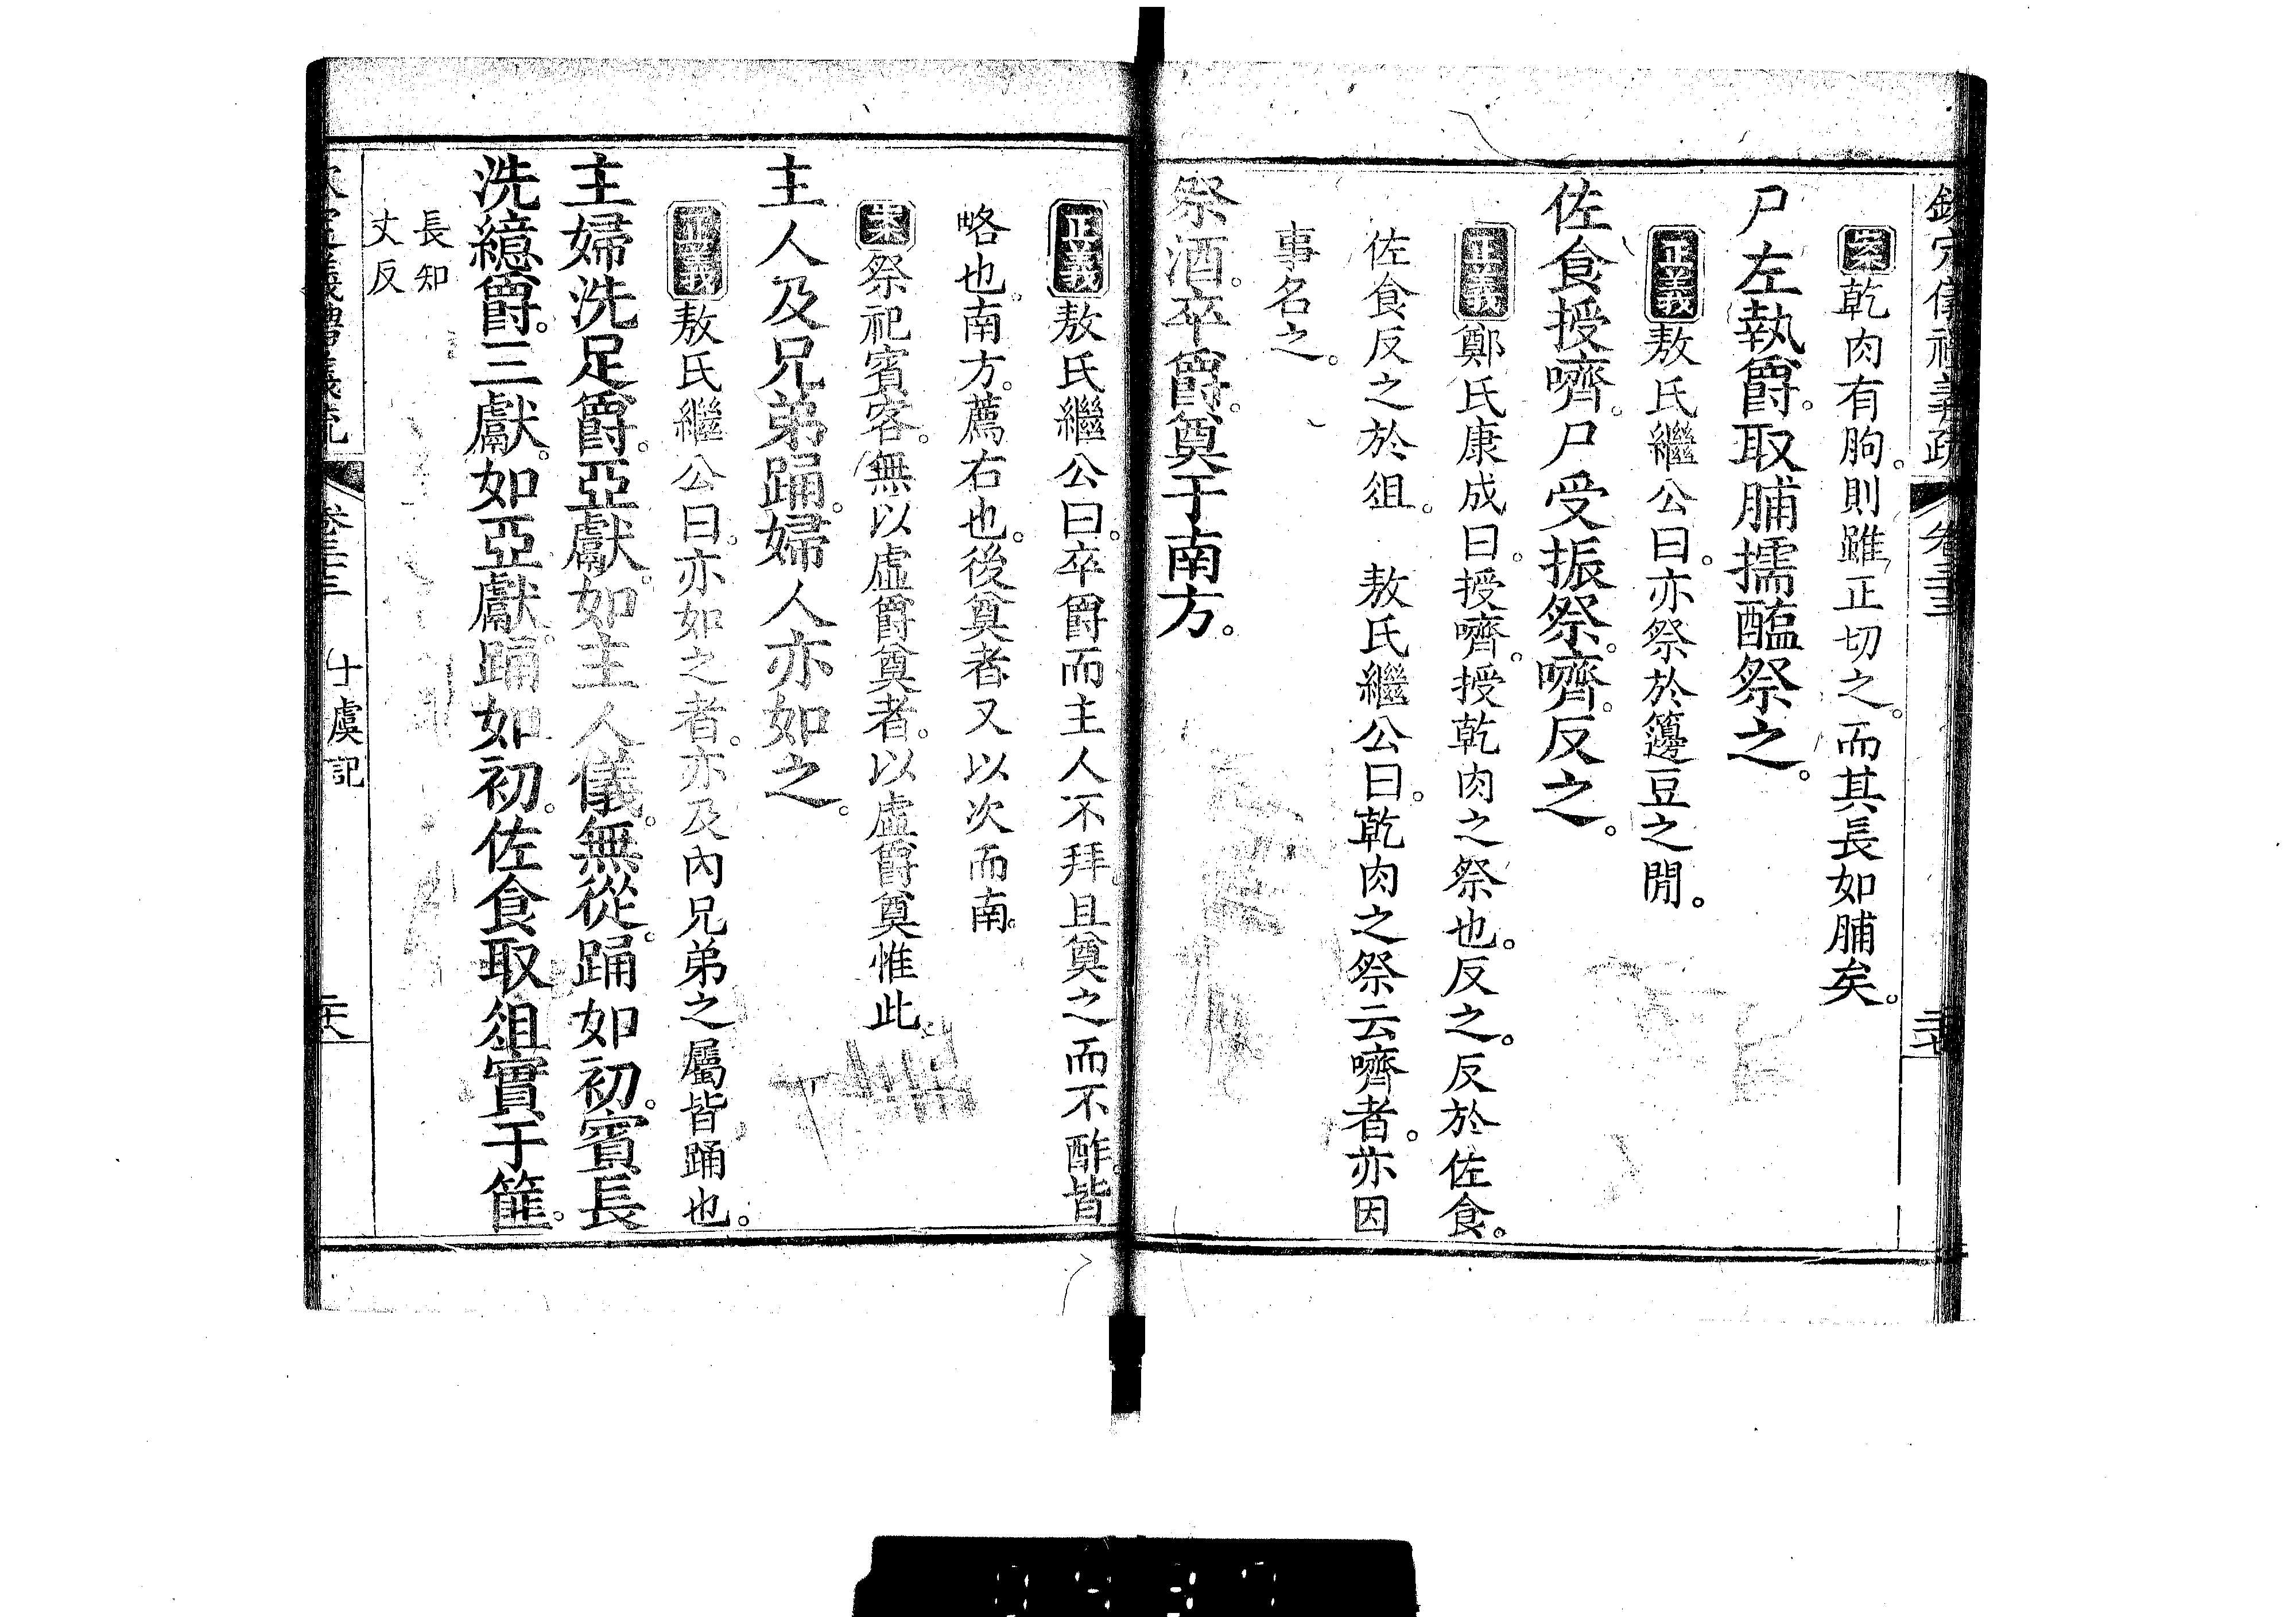 欽定儀禮義疏 卷三十三 三十七
案乾肉有朐。則雖正切之。而其長如脯矣。
尸左執爵。取脯擩醢祭之。
正義敖氏繼公曰。亦祭於籩豆之閒。
佐食授嚌。尸受振祭。嚌。反之。
正義鄭氏康成曰。授嚌。授乾肉之祭也。反之。反於佐食。
佐食反之於俎。 敖氏繼公曰。乾肉之祭云嚌者。亦因
事名之。
祭酒。卒爵。奠于南方。
正義敖氏繼公曰。卒爵而主人不拜。且奠之而不酢。皆
略也。南方。薦右也。後奠者又以次而南。
案祭祀賓客。無以虛爵奠者。以虛爵奠惟此。
主人及兄弟踊。婦人亦如之。
正義敖氏繼公曰。亦如之者。亦及內兄弟之屬皆踊也。
主婦洗足爵。亞獻。如主人儀。無從。踊如初。賓長
洗繶爵。三獻。如亞獻。踊如初。佐食取俎實于篚。
長知
丈反
欽定儀禮義疏 卷三十三 士虞記 三十八